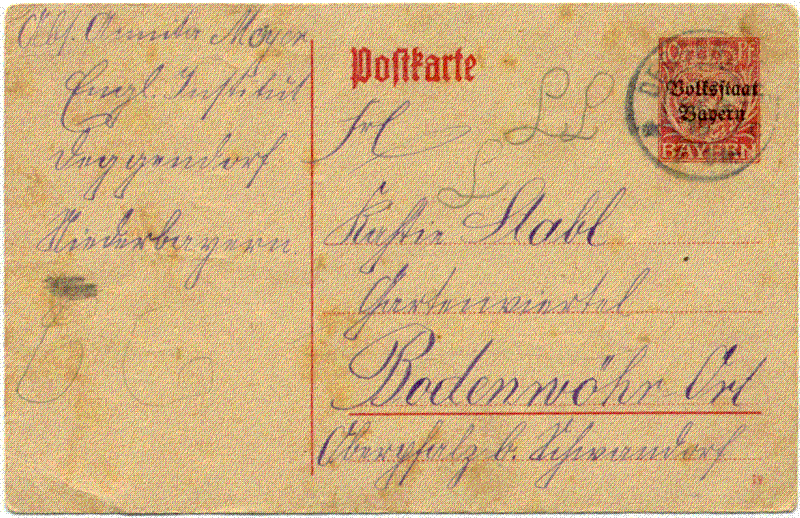 Abs. Annita Mayer
Engl. Institut
Deggendorf
Niederbayern.
Postkarte
10 Pf
Volksstaat
Bayern
BAYERN
Frl
Stabl
Gartenviertel
Bodenwöhr-Ort
Oberpfalz b. Schwandorf